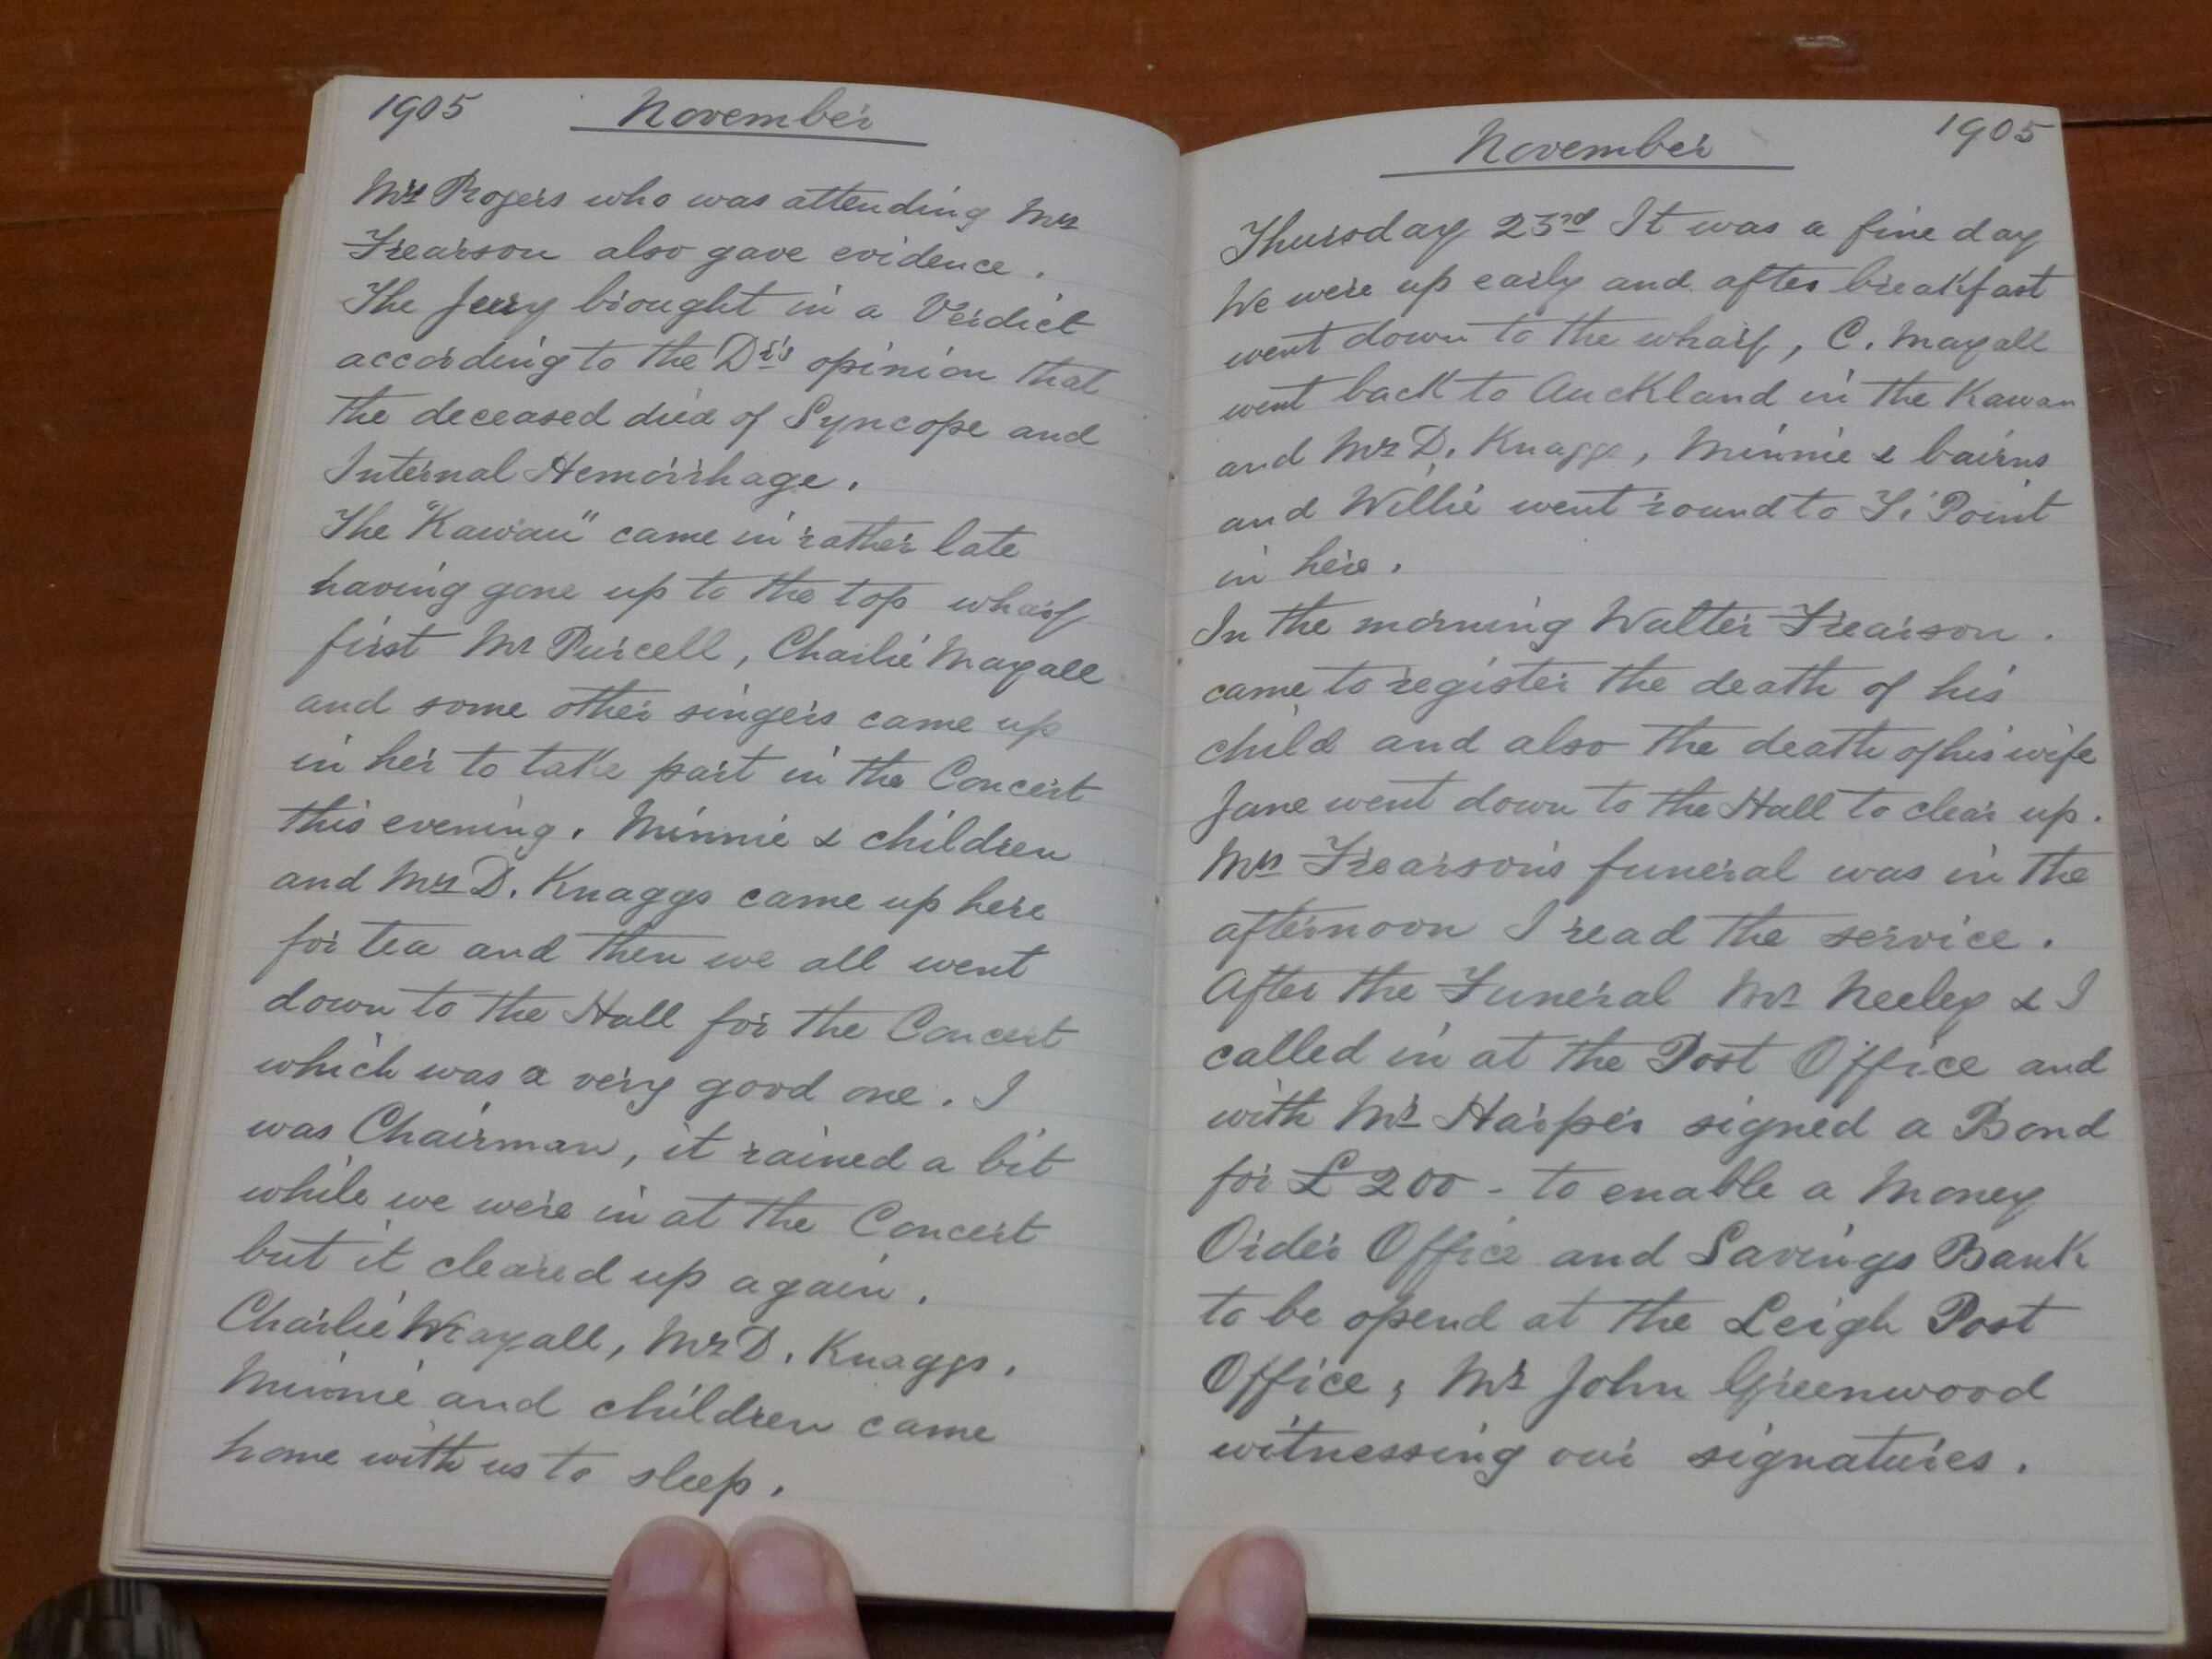 1905 November
Mrs Rogers who was attending Mrs
Frearson also gave evidence.
The Jury brought in a Verdict
according to the Dr's opinion that
the deceased died of Syncope and
Internal Hemorrhage.
The "Kawau" came in rather late
having gone up to the top wharf
first Mr Purcell, Charlie Mayall
and some other singers came up
in her to take part in the Concert
this evening. Minnie & children
and Mrs D. Knaggs came up here
for tea and then we all went
down to the Hall for the Concert
which was a very good one. I
was Chairman, it rained a bit
while we were in at the Concert
but it cleared up again.
Charlie Mayall, Mrs D. Knaggs.
Minnie and children came
home with us to sleep.
November 1905
Thursday 23rd It was a fine day
We were up early and after breakfast
went down to the wharf, C. Mayall
went back to Auckland in the Kawau
and Mrs D. Knaggs, Minnie & bairns
and Willie went round to Ti Point
in her.
In the morning Walter Frearson.
came to register the death of his
child and also the death of his wife
Jane went down to the Hall to clear up.
Mrs Frearson's funeral was in the
afternoon I read the service.
After the Funeral Mr Neeley & I
called in at the Post Office and
with Mr Harper signed a Bond
for £200 - to enable a Money
Order Office and Savings Bank
to be opend at the Leigh Post
Office, Mr John Greenwood
witnessing our signatures.